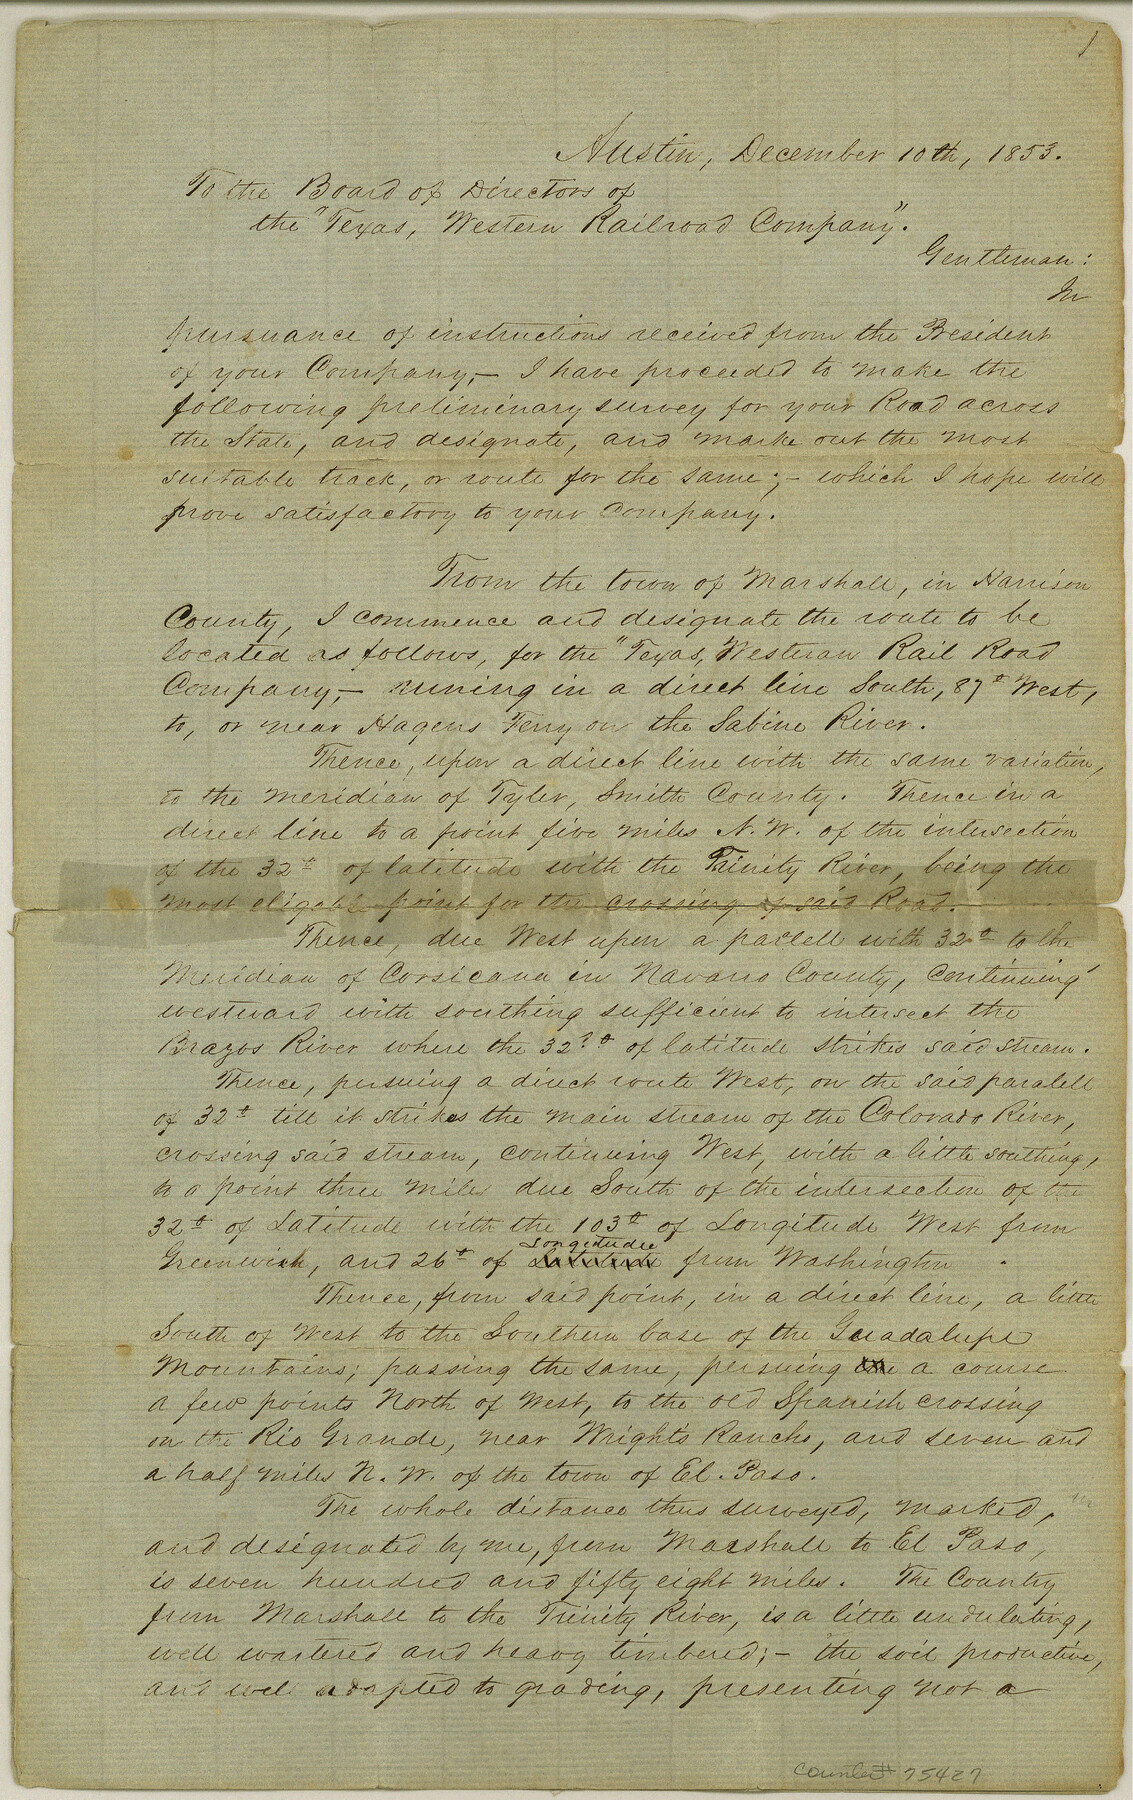 1
Austin, December 10th, 1853.
To the Board of Directors of
the "Texas, Western Railroad Company".
Gentleman:
In
pursuance of instructions received from the President
of your Company,- I have proceeded to make the
following preliminary survey for your Road across
the State, and designate, and marke out the most
suitable track, or route for the same;- which I hope will
prove satisfactory to your Company.
From the town of Marshall, in Harrison
County, I commence and designate the route to be
located as follows, for the "Texas, Westeran Rail Road
Company,- runing in a direct line South, 87° West,
to, or near Hagens Ferry on the Sabine River.
Thence, upon a direct line with the same variation,
to the meridian of Tyler, Smith County. Thence in a
direct line to a point five miles N.W. of the intersection
of the 32° of latitude with the Trinity River, being the
most eligable point for the crossing of said Road.
Thence, due West upon a parlell with 32° to the
Meridian of Corsicana in Navarro County, continuing
westward with southing sufficient to intersect the
Brazos River where the 32° of latitude strikes said stream.
Thence, persuing a direct route West, on the said paralell
of 32° till it strikes the main stream of the Colorado River,
crossing said stream, continuing West, with a little southing,
to a point three miles due South of the intersection of the
32° of Latitude with the 103° of Longitude West from
Greenwich, and 26° of Longetudee from Washington .
Thence, from said point, in a direct line, a little
South of West to the Southern base of the Guadalupe
Mountains; passing the same, persuing a course
a few points North of West, to the old Spanish crossing
on the Rio Grande, near Wright's Rancho, and seven and
a half miles N.W. of the town of El. Paso.
The whole distance thus surveyed, marked,
and designated by me, from Marshall to El Paso,
is seven hundred and fifty eight miles. The Country
from Marshall to the Trinity River, is a little undulating,
well wartered and heavy timbered;- the soil productive,
and well adapted to grading, presenting not a
Counter # 75427